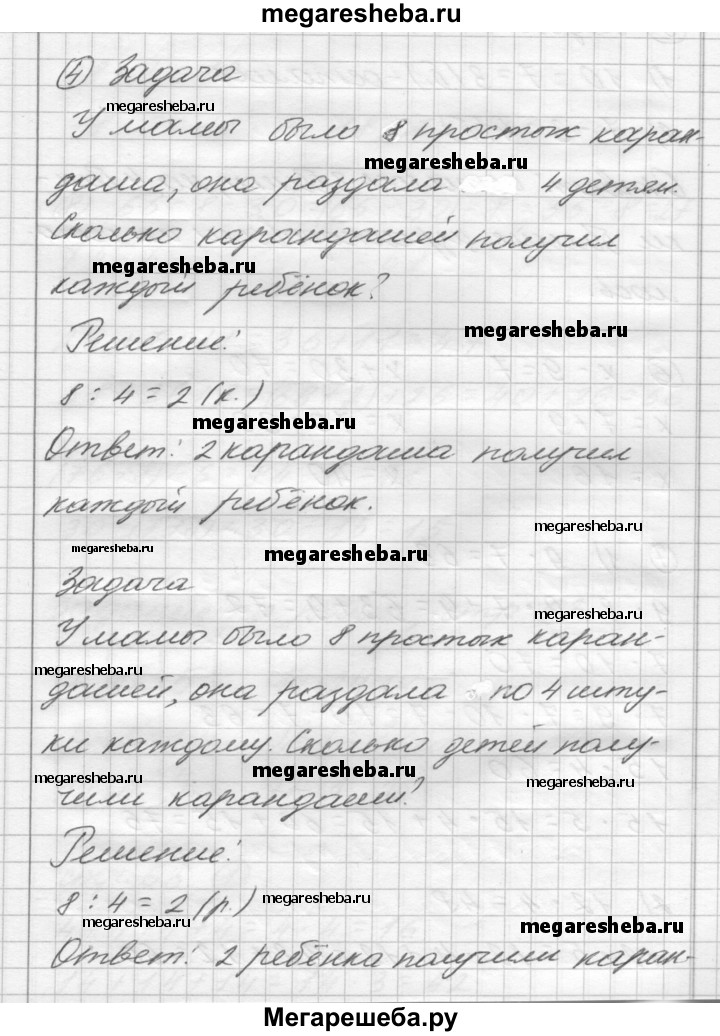 megaresheba.ru
④ Задача
megaresheba.ru
У мамы было 8 простых каран-
megaresheba.ru
даша, она раздала 4 детям.
Сколько карандашей получил
megaresheba.ru
каждый ребёнок?
megaresheba.ru
Решение:
8 : 4 = 2 (к.)
megaresheba.ru
Ответ: 2 карандаша получил
каждый ребёнок.
megaresheba.ru
megaresheba.ru
megaresheba.ru
Задача
megaresheba.ru
У мамы было 8 простых каран-
megaresheba.ru
дашей, она раздала по 4 шту-
ки каждому. Сколько детей полу-
megaresheba.ru
megaresheba.ru
megaresheba.ru
чили карандаши?
Решение:
8 : 4 = 2 (р.)
megaresheba.ru
megaresheba.ru
megaresheba.ru
Ответ: 2 ребёнка получили каран-
Мегарешеба.ру